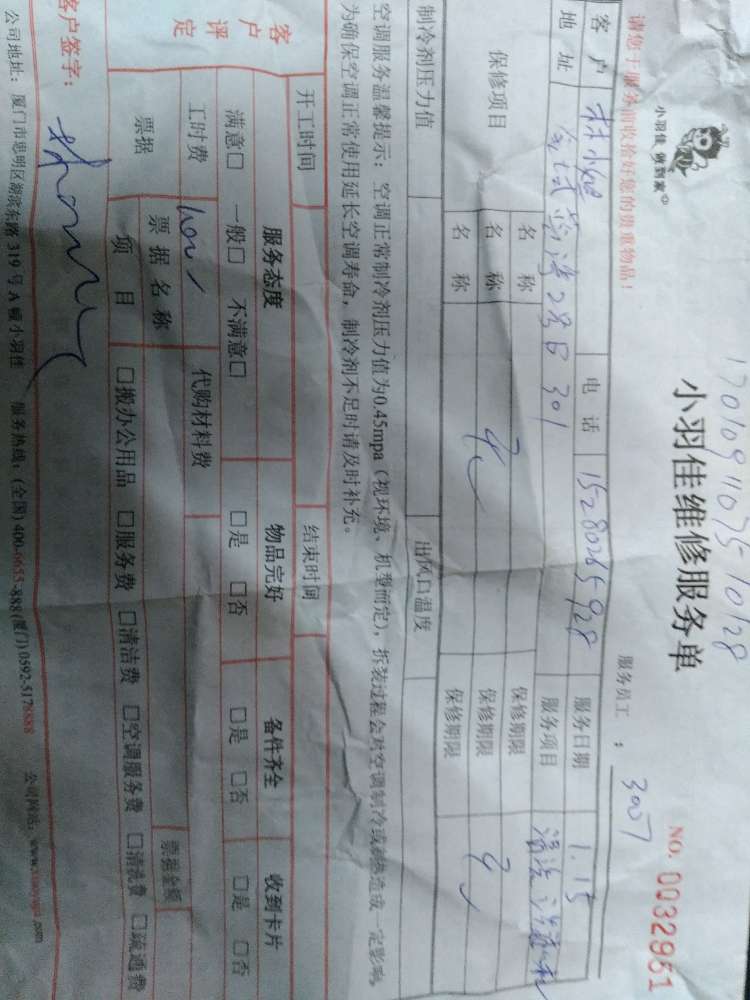 小羽佳 做到家
170109110751 0128
小羽佳维修服务单
NO. 0032951
请您于服务前收拾好您的贵重物品！
服务员工： 3007
客户 林小姐 电话 15280265928 服务日期 1.15
地址 28号B 301 服务项目 清洗
保修项目 名称 保修期限
名称 无 保修期限 无
名称 保修期限
制冷剂压力值 出风口温度
空调服务温馨提示：空调正常制冷剂压力值为0.45mpa（视环境、机型而定），拆装过程会对空调制冷或制热造成一定影响，
为确保空调正常使用延长空调寿命，制冷剂不足时请及时补充。
开工时间 结束时间
客户评定 服务态度 物品完好 备件齐全 收到卡片
满意□ 一般□ 不满意□ □是 □否 □是 □否 □是 □否
工时费 代购材料费
票据 票据名称 票据金额
项目 □搬办公用品 □服务费 □清洁费 □空调服务费 □清洗费 □疏通费
客户签字：
公司地址：厦门市思明区湖滨东路319号A幢小羽佳 服务热线：(全国)400-6655-888(厦门)0592-5178888 公司网站：